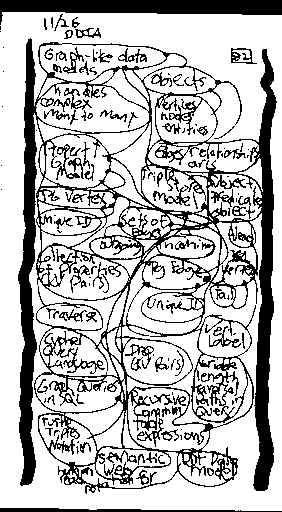 11/26
DDIA
82
Graph-like data
models
Objects
handles
complex
many to many
vertices
nodes
entities
Edges/Relationships
arcs
Property
Graph
Model
Triple
Stores
Model
Subject
predicate
object
Vertex
Unique ID
Sets of
Edges
outgoing
incoming
Collection
of Properties
(KV Pairs)
Edge
Vertex
Tail
Unique ID
Traverse
Vert.
Label
Cypher
Query
Language
Prop
(KV Pairs)
Variable
length
traversal
paths in
Query
Graph Queries
in SQL
Recursive
Common
table
expressions
Turtle
Triples
Notation
Semantic
Web
Data
Model
human
read
notation